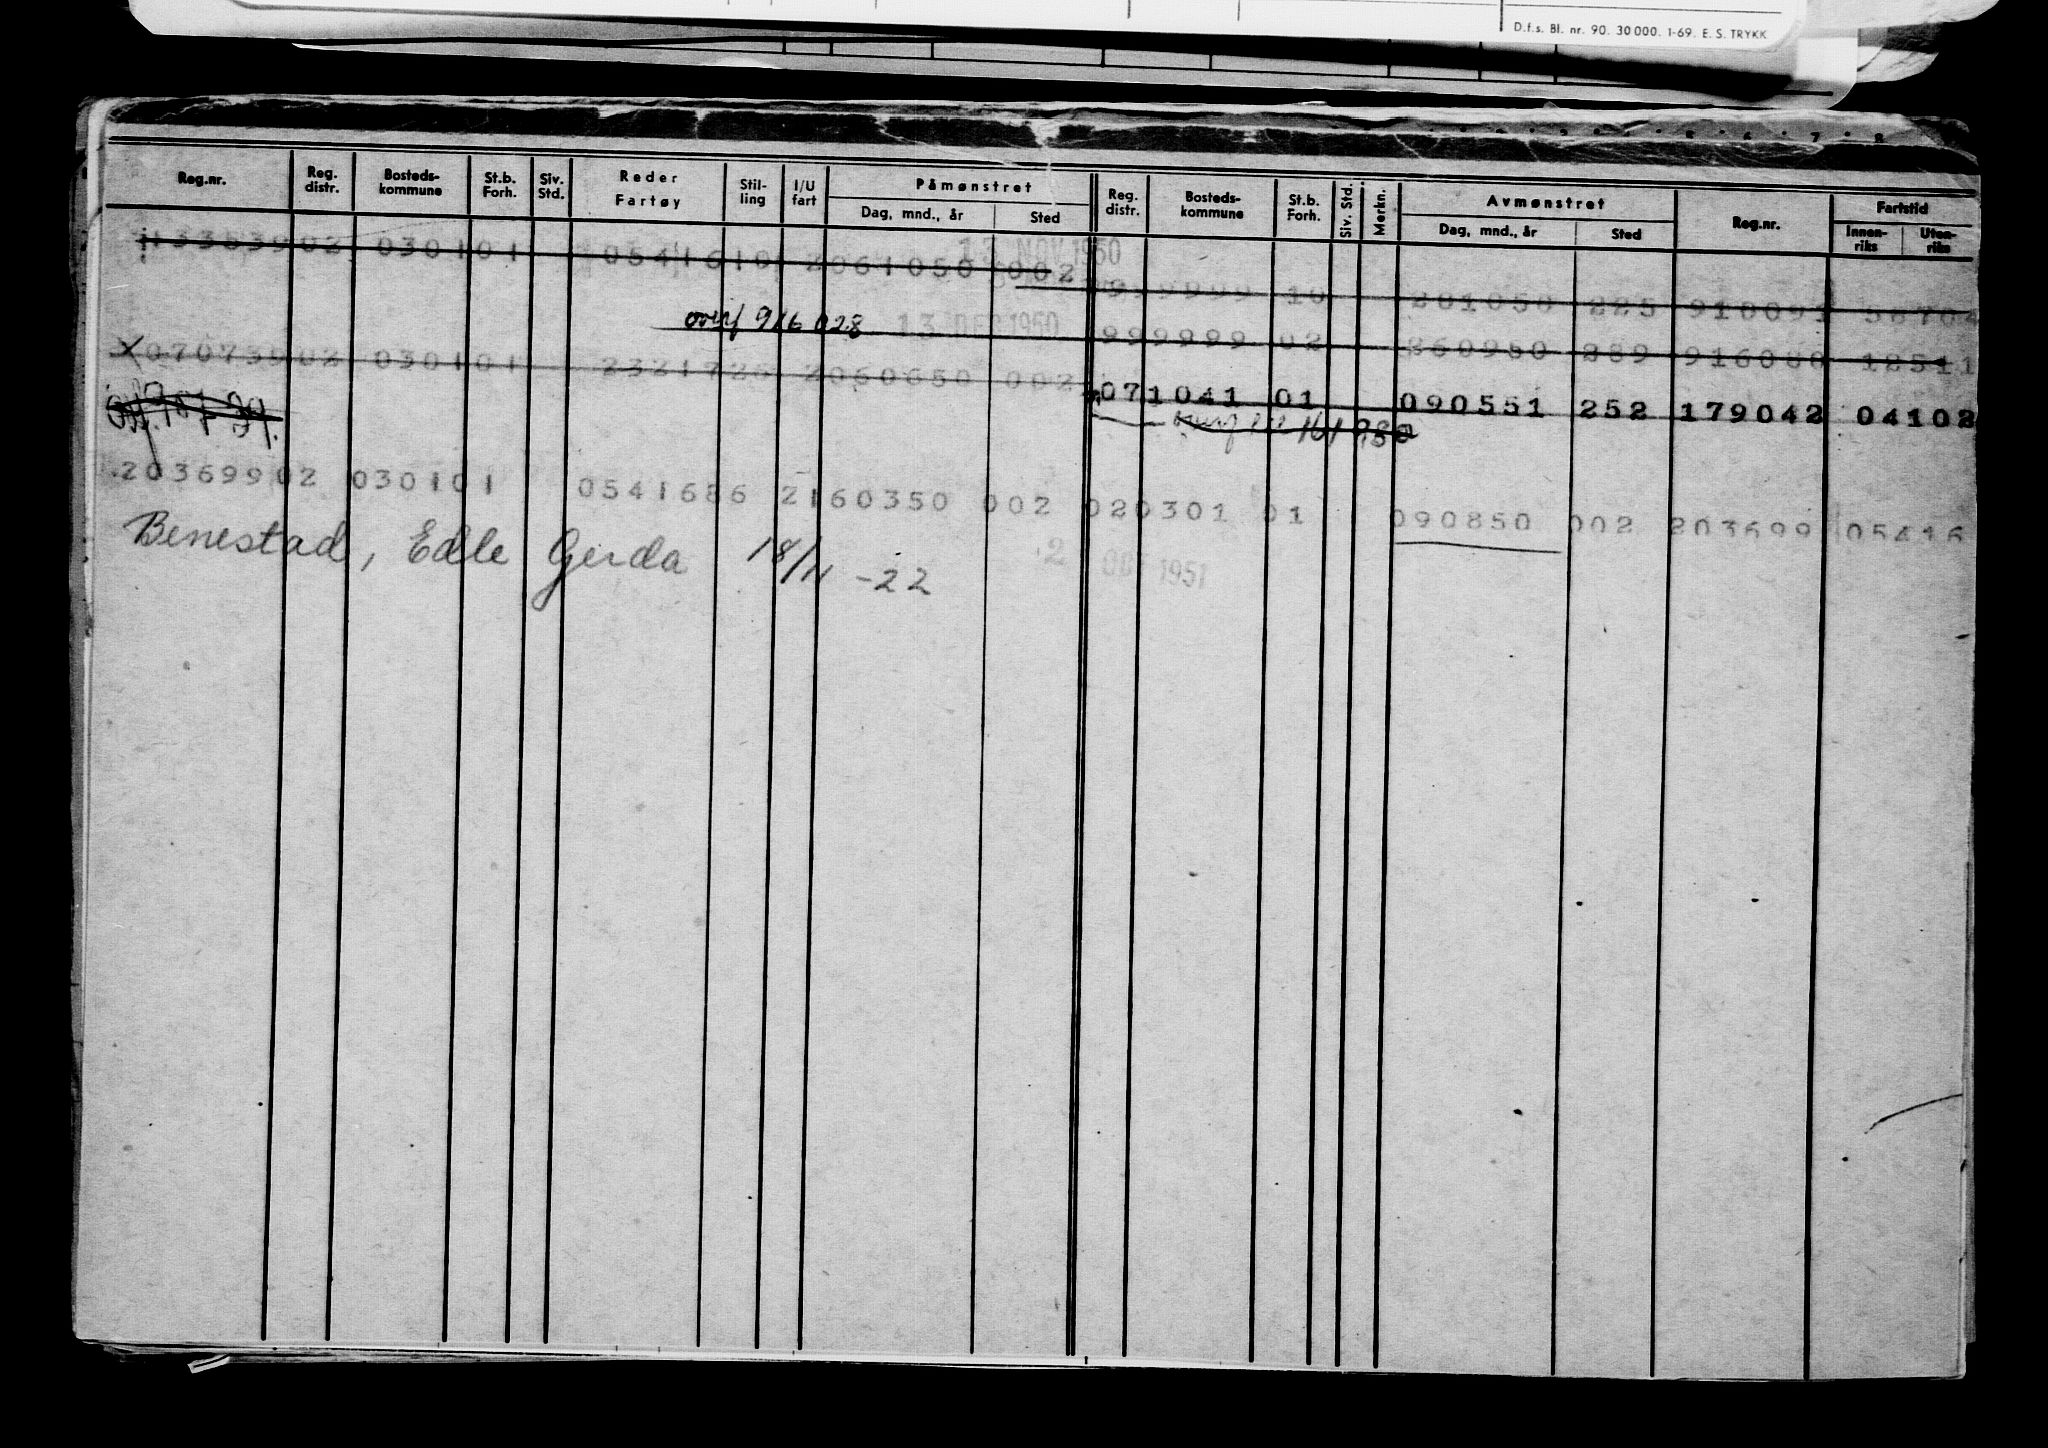 D.f.s. Bl. nr. 90. 30 000. 1-69. E. S. TRYKK
Reg.nr. Reg. distr. Bosteds- kommune St.b. Forh. Siv. Std. Reder Fartøy Stil- ling I/U fart Påmønstret Dag, mnd., år Sted Reg. distr. Bosteds- kommune St.b. Forh. Siv. Std. Merkn. Avmønstret Dag, mnd., år Sted Reg.nr. Fartstid Innen- riks Uten- riks
13 NOV 1950
02 030101 0541610 2061050 002
999999 10 201050 225 910091
916028 13 DEC 1950
999999 02 260950 289 916080 12511
X 070739 02 030101 2321726 2060650 002
071041 01 090551 252 179042 04102
203699 02 030101 0541686 2160350 002 020301 01 090850 002 203699 05416
Benestad, Edle Gerda 18/11 -22
2 OCT 1951